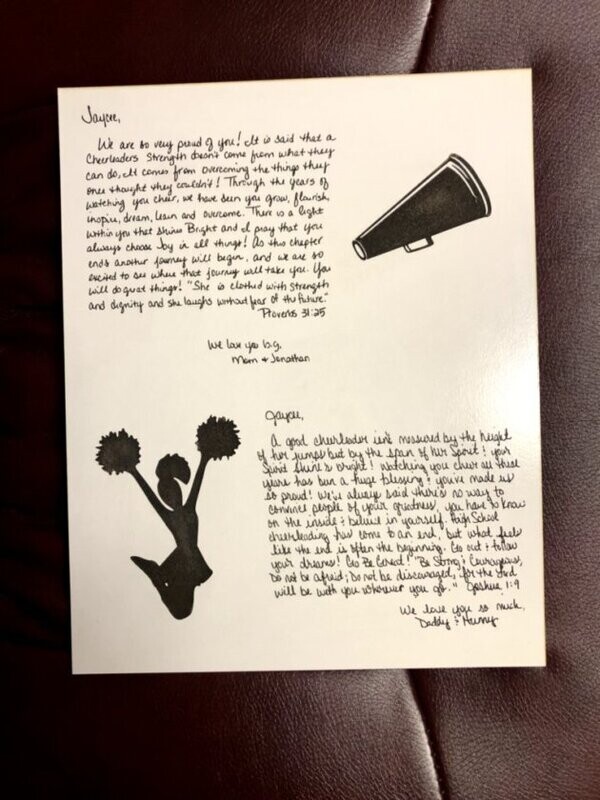 Jaycee,
We are so very proud of you! It is said that a
Cheerleaders Strength doesn't come from what they
can do, it comes from overcoming the things they
once thought they couldn't! Through the years of
watching you cheer, we have seen you grow, flourish,
inspire, dream, learn and overcome. There is a light
within you that shines Bright and I pray that you
always choose Joy in all things! As this chapter
ends another journey will begin, and we are so
excited to see where that journey will take you. You
will do great things! "She is clothed with strength
and dignity and she laughs without fear of the future."
Proverbs 31:25
We love you b.g.
Mom + Jonathan
Jaycee,
A good cheerleader isn't measured by the height
of her jumps but by the span of her Spirit! your
Spirit shine's bright! Watching you cheer all these
years has been a huge blessing & you've made us
so proud! We've always said there's no way to
convince people of your greatness, you have to know
on the inside & believe in yourself. High School
cheerleading has come to an end, but what feels
like the end is often the beginning. Go out & follow
your dreams! Go Be Great! "Be Strong & Courageous,
Do not be afraid; Do not be discouraged, for the Lord
will be with you wherever you go." Joshua 1:9
We love you so much,
Daddy &